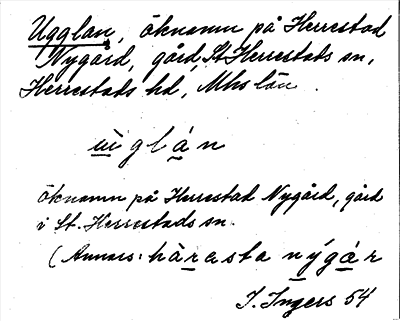 Ugglan, öknamn på Herrestad
Nygård, gård, St Herrestads sn,
Herrestads hd, Mhs län.
ùglán
öknamn på Herrestad Nygård, gård
i St. Herrestads sn.
(Annars: hàrasta nýgár
I. Ingers 54